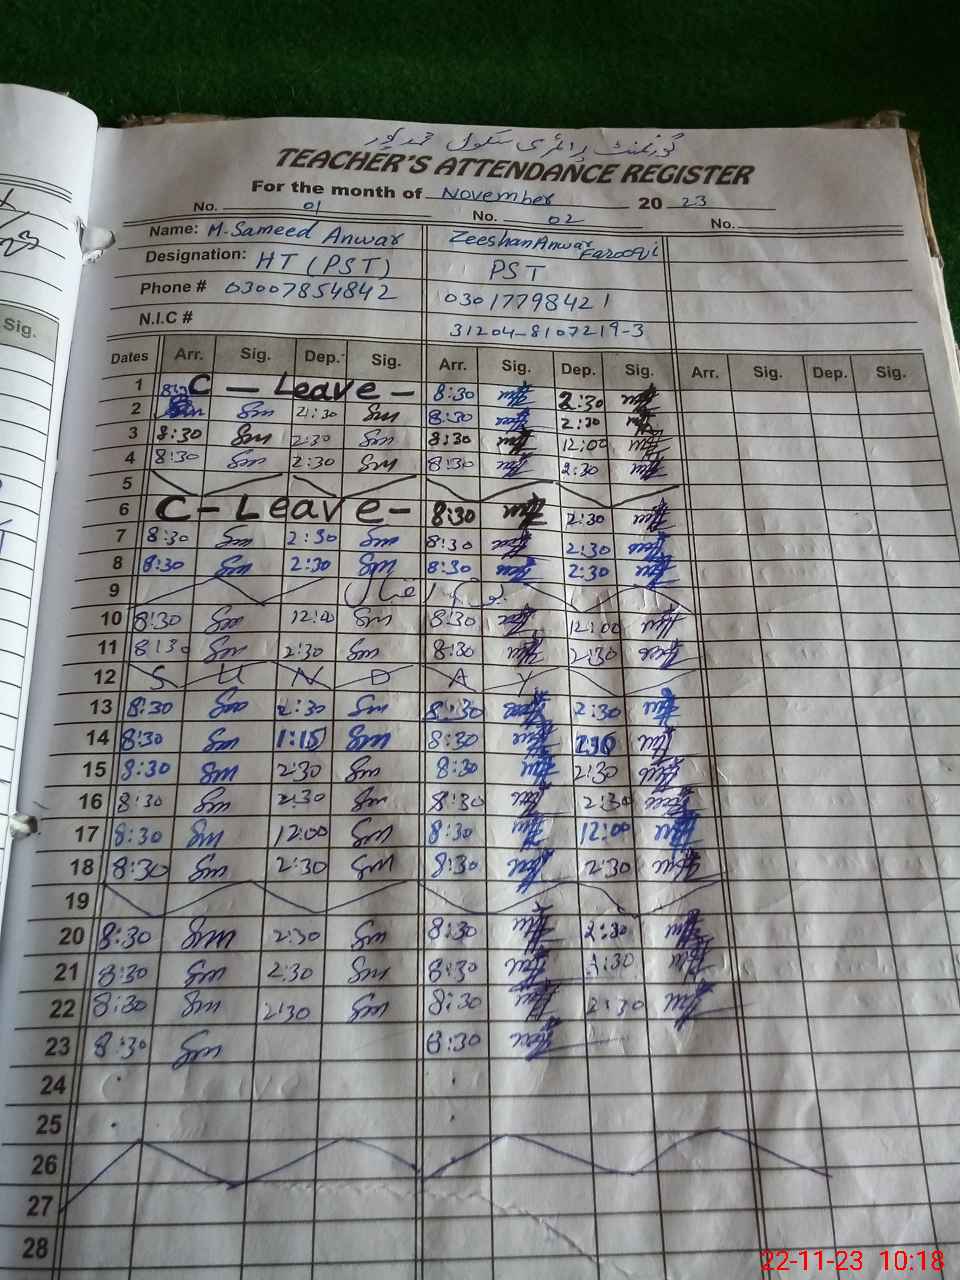 گورنمنٹ پرائمری سکول محمد پور
TEACHER'S ATTENDANCE REGISTER
For the month of November 20 23
No. 01 No. 02 No.
Name: M. Sameed Anwar Zeeshan Anwar Farooqi
Designation: HT (PST) PST
Phone # 03007854842 03017798421
N.I.C # 31204-8107219-3
Sig.
Dates Arr. Sig. Dep. Sig. Arr. Sig. Dep. Sig. Arr. Sig. Dep. Sig.
1 8:30 C - Leave - 8:30 2:30
2 Sm 2:30 Sm 8:30 2:30
3 8:30 Sm 2:30 Sm 8:30 12:00
4 8:30 Sm 2:30 Sm 8:30 2:30
5
6 C - Leave - 8:30 2:30
7 8:30 Sm 2:30 Sm 8:30 2:30
8 8:30 Sm 2:30 Sm 8:30 2:30
9 یوم اقبال
10 8:30 Sm 12:00 Sm 8:30 12:00
11 8:30 Sm 2:30 Sm 8:30 2:30
12 S U N D A Y
13 8:30 Sm 2:30 Sm 8:30 2:30
14 8:30 Sm 1:15 Sm 8:30 2:30
15 8:30 Sm 2:30 Sm 8:30 2:30
16 8:30 Sm 2:30 Sm 8:30 2:30
17 8:30 Sm 12:00 Sm 8:30 12:00
18 8:30 Sm 2:30 Sm 8:30 2:30
19
20 8:30 Sm 2:30 Sm 8:30 2:30
21 8:30 Sm 2:30 Sm 8:30 2:30
22 8:30 Sm 2:30 Sm 8:30 2:30
23 8:30 Sm 8:30
24
25
26
27
28
22-11-23 10:18